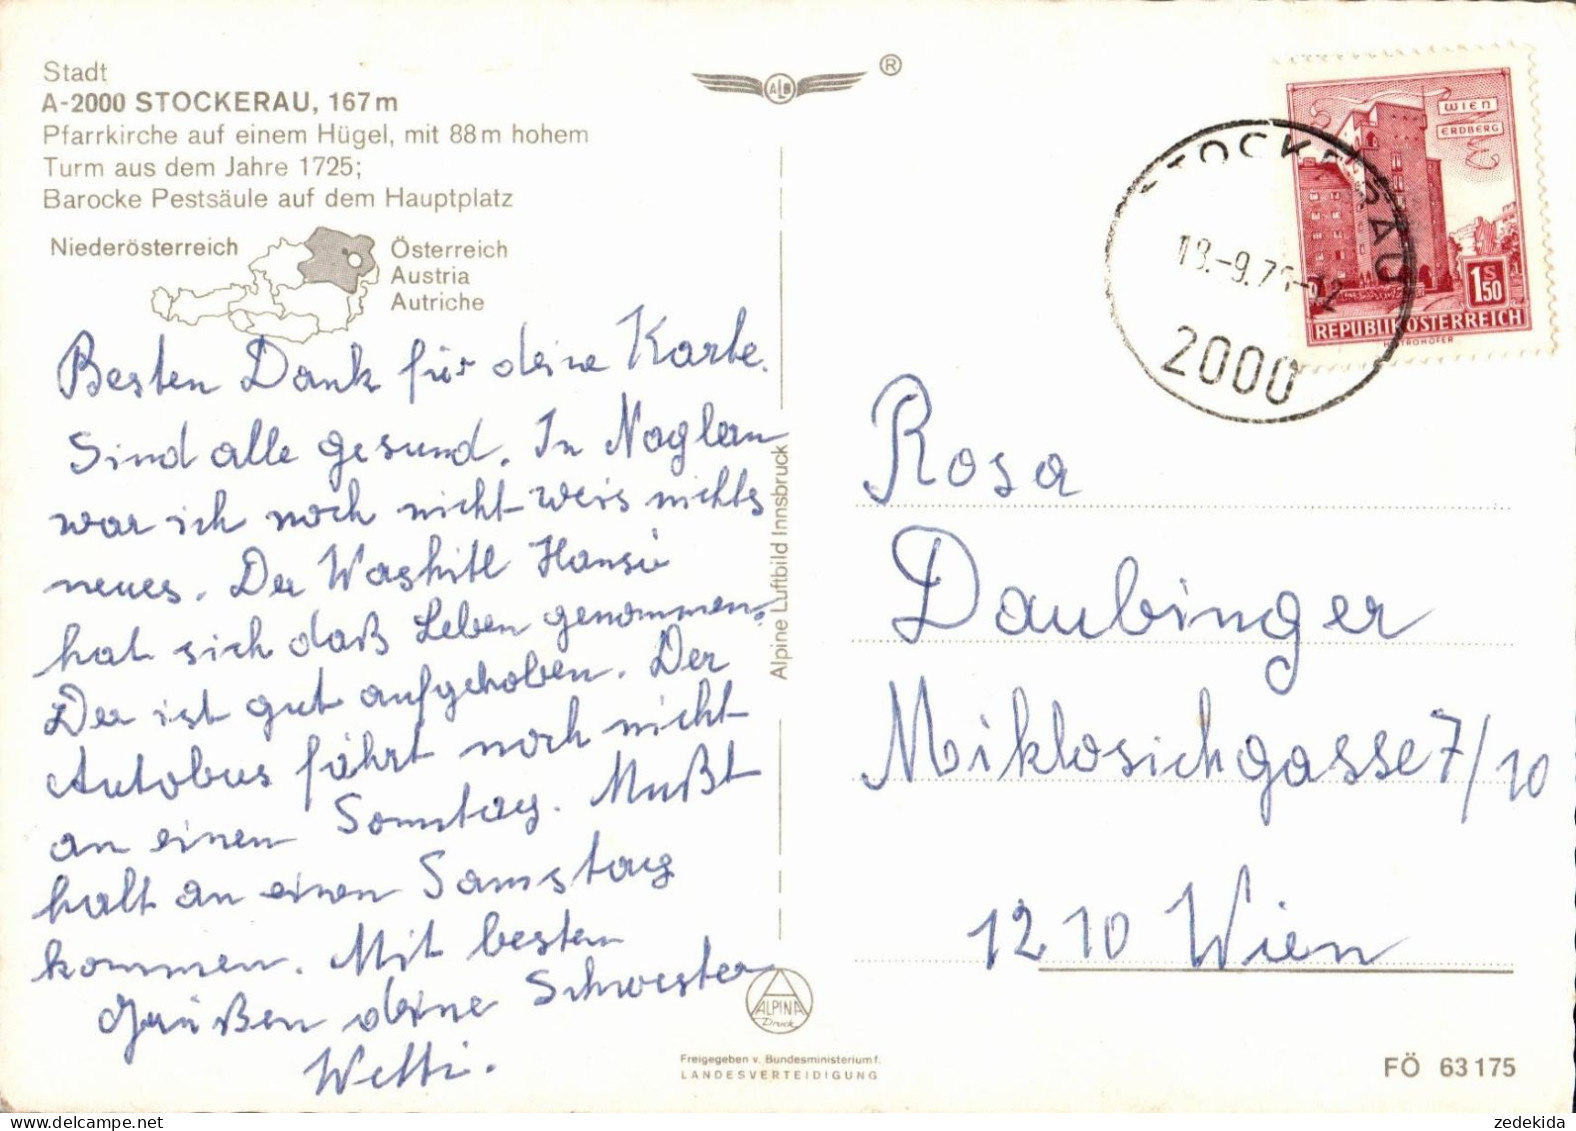 Stadt
A-2000 STOCKERAU, 167 m
Pfarrkirche auf einem Hügel, mit 88 m hohem
Turm aus dem Jahre 1725;
Barocke Pestsäule auf dem Hauptplatz
Niederösterreich
Österreich
Austria
Autriche
Besten Dank für deine Karte.
Sind alle gesund. In Naglan
war ich noch nicht weis nichts
neues. Der Waskitl Hansi
hat sich daß Leben genommen.
Der ist gut aufgehoben. Der
Autobus fährt noch nicht
an einen Sonntag. Mußt
halt an einen Samstag
kommen. Mit besten
Grüßen deine Schwester
Wetti.
ALB ®
Alpine Luftbild Innsbruck
ALPINA
Druck
Freigegeben v. Bundesministerium f.
LANDESVERTEIDIGUNG
STOCKERAU
2000
WIEN
ERDBERG
1 S 50
REPUBLIK ÖSTERREICH
Rosa
Daubinger
Miklosichgasse 7/10
1210 Wien
FÖ 63 175
zedekida